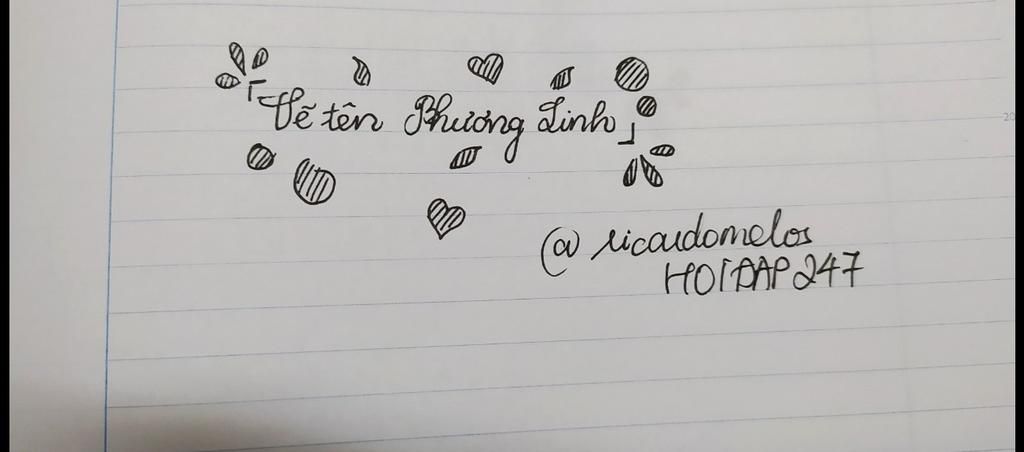 「Vẽ tên Phương Linh」
@ricardomelos
HOIĐAP247
20